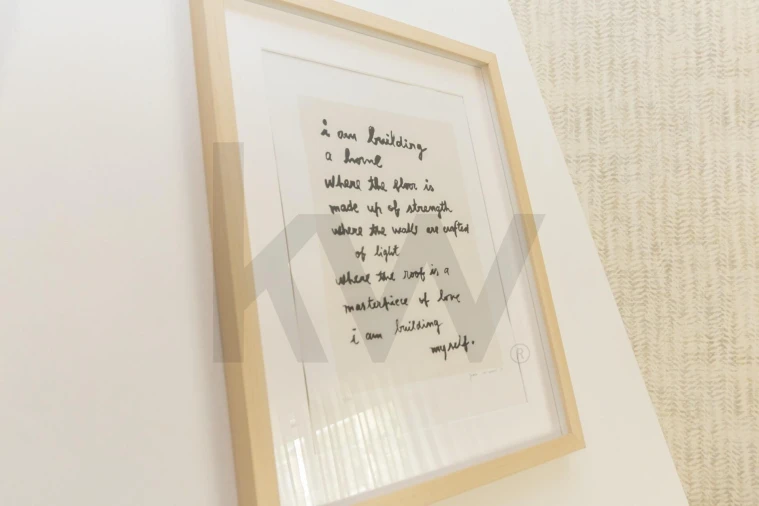 i am building
a home
where the floor is
made up of strength
where the walls are crafted
of light
where the roof is a
masterpiece of love
i am building
myself.
kw®